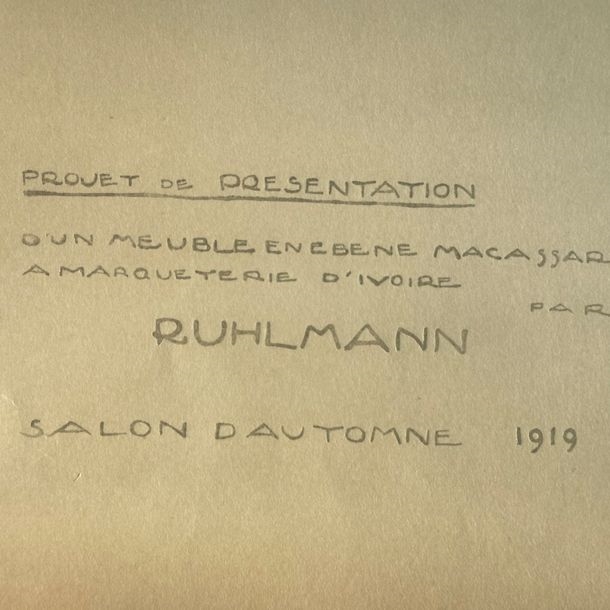 PROJET DE PRESENTATION
D'UN MEUBLE EN EBENE MACASSAR
A MARQUETERIE D'IVOIRE
PAR
RUHLMANN
SALON D'AUTOMNE 1919